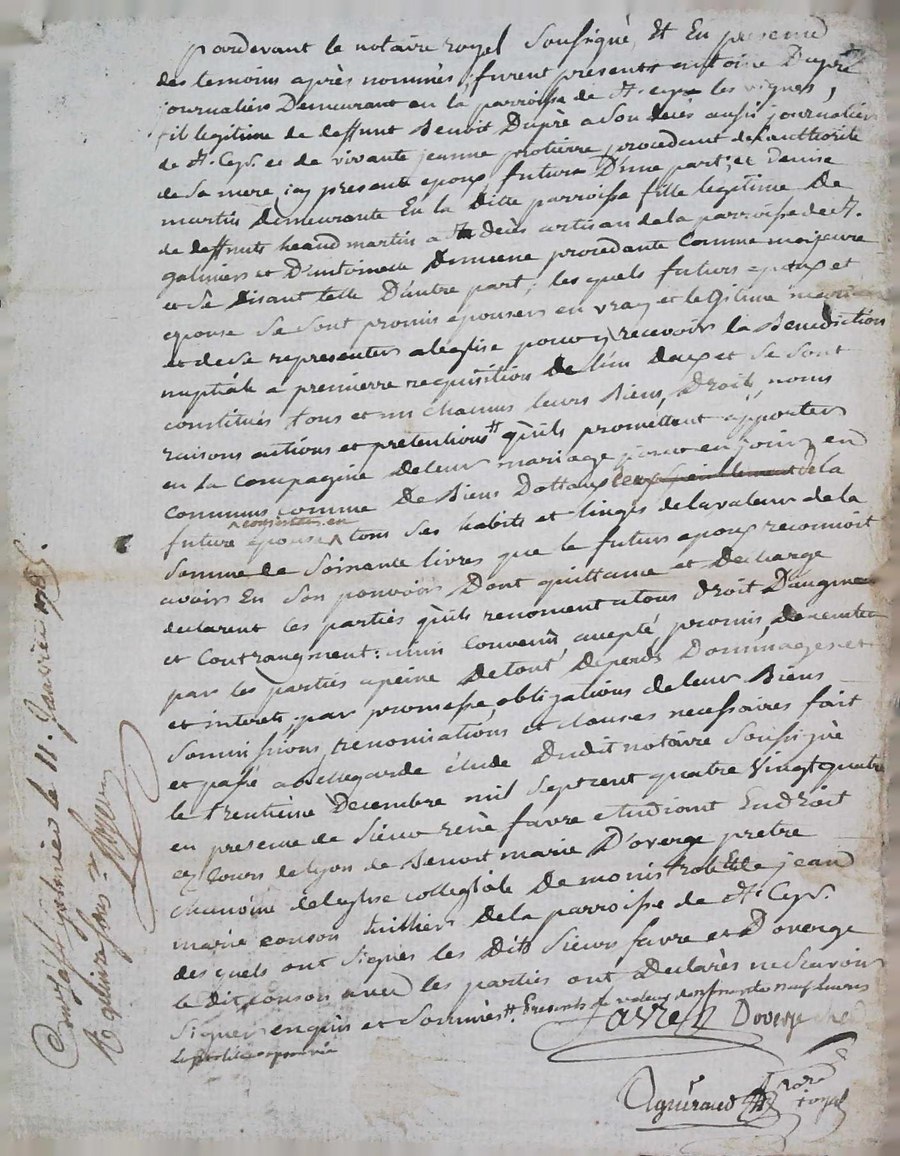 pardevant le notaire royel Sousigné, Et En presence
des temoins après nommés, furent presents antoine Dupré
journalier Demeurant en la parroisse de St. Cyr les vignes,
fil legitime de deffunt Benoit Dupré a Son deiés aussi journalier
de St. Cyr. et de vivante jeanne protierre, procedant de l'authorité
de Sa mere icy presente epoux futur D'une part; et Denise
martin demeurante En la Ditte parroisse fille légitime De
de deffunts heand martin a deiés artisan de la parroisse de St.
galmier et D'antoinette procedante Comme majeure
et Se Disant telle D'autre part; les quels futurs epoux et
epouse Se Sont promis epouser en vray et legitime
et de Se representer a leglise pour y recevoir la Benediction
nuptiale a premierre requisition De l'un Deux et Se Sont
constitués tous et un chacuns leurs Biens, Droits, noms
raisons actions et pretentions # qu'ils promettent apporter
en La Compagnie De leur mariage pour en jouir en
Communs comme De Biens Dottaux de la
future epouse ^ consistant en tous Ses habits et linges de la valeur de la
Somme de Soixante livres que le futur epoux reconnoit
avoir En Son pouvoir Dont quittance et Decharge
declarent les parties qu'ils renoncent a tous droit D'augment
et Contraugment: ainsi Convenu accepté, promis,
par les parties a peine De tout Depends Dommages et
et interets, par promesse, obligations de leur Biens
Soumissions, renonciations, et clauses necessaires fait
et passé a Bellegarde étude Dudit notaire Sousigné
le trentieme Decembre mil Septcent quatre Vingt quatre
en presence de Sieur rené favre etudiant En droit
ez Cours de lyon de Benoit marie D'overge pretre
Chanoine de leglise collegiale De de jean
marie conson tuillier De la parroisse de St. Cyr.
des quels ont Signés les Dits Sieurs favre et D'overge
le dit conson avec les parties ont Declarés ne Scavoir
Signer enquis et Sommés #. Presents de valeur de neuf livres
Favre Doverge
Agniéraud
royal
Controllé a St galmier le 11. Janvier 1785.